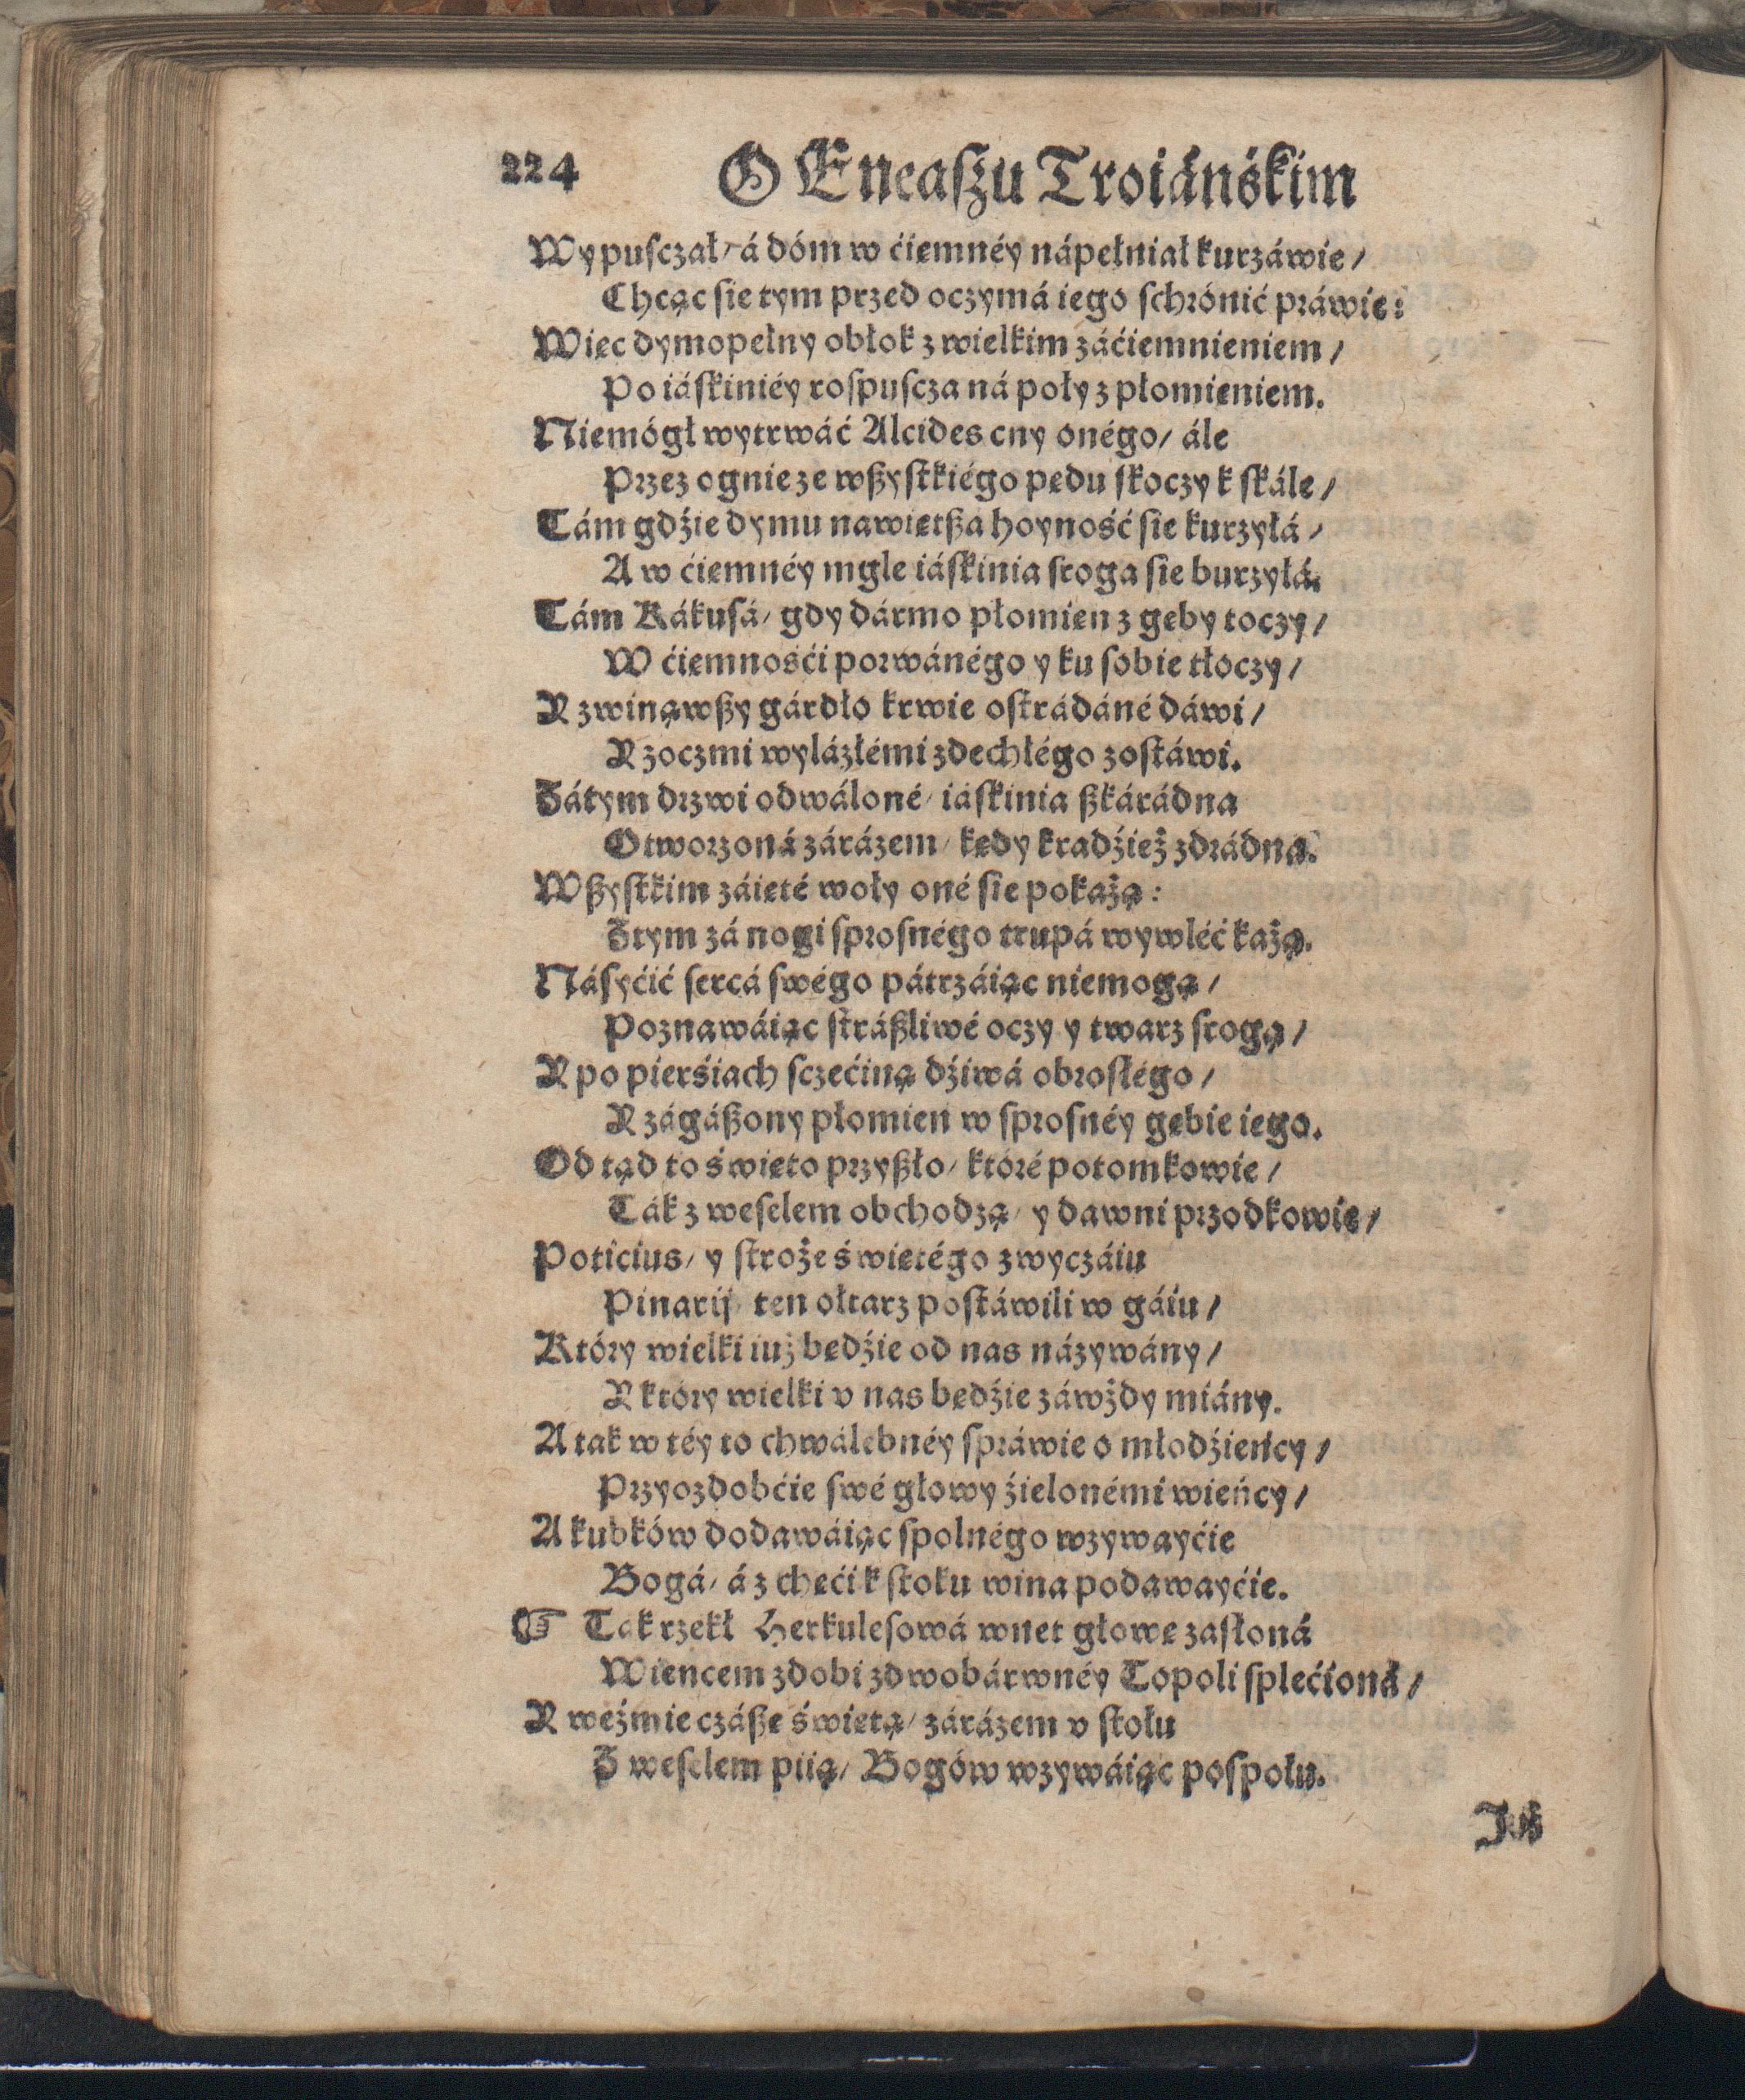 224 O Eneaſzu Troiáńśkim
Wypuſczał/ á dóm w ćiemnéy nápełniał kurzáwie/
Chcąc ſie tym przed oczymá iego ſchrónić práwie:
Więc dymopełny obłok z wielkim záćiemnieniem/
Po iáſkiniéy roſpuſcza ná poły z płomieniem.
Niemógł wytrwáć Alcides cny onégo/ ále
Przez ognie ze wßyſtkiégo pędu ſkoczy k ſkále/
Tám gdźie dymu nawiętßa hoyność ſie kurzyłá/
A w ćiemnéy mgle iáſkinia ſroga ſie burzyłá.
Tám Kákuſá/ gdy dármo płomień z gęby toczy/
W ćiemnośći porwánégo y ku ſobie tłoczy/
Y zwinąwßy gárdło krwie oſtrádáné dáwi/
Y z oczmi wylázłémi zdechłégo zoſtáwi.
Zátym drzwi odwáloné/ iáſkinia ßkárádna
Otworzoná zárázem/ kędy kradźież zdrádna.
Wßyſtkim záięté woły oné ſie pokażą:
Ztym zá nogi ſproſnégo trupá wywléć każą.
Náſyćić ſercá ſwégo pátrzáiąc niemogą/
Poznawáiąc ſtráßliwé oczy y twarz ſrogą/
Y po pierśiach ſczećiną dźiwá obroſłégo/
Y zágáßony płomień w ſproſnéy gębie iego.
Od tąd to święto przyßło/ któré potomkowie/
Ták z weſelem obchodzą/ y dawni przodkowie/
Poticius/ y ſtroże świętégo zwyczáiu
Pinarij/ ten ołtarz poſtáwili w gáiu/
Który wielki iuż będźie od nas názywány/
Y który wielki v nas będźie záwżdy miány.
A tak w téy to chwálebnéy ſpráwie o młodźieńcy/
Przyozdobćie ſwé głowy źielonémi wieńcy/
A kubków dodawáiąc ſpolnégo wzywayćie
Bogá/ á z chęći k ſtoku wina podawayćie.
☞ Tak rzekł Herkuleſowá wnet głowę zasłoná
Wieńcem zdobi z dwobárwnéy Topoli ſplećioná/
Y weźmie czáßę świętą/ zárázem v ſtołu
Z weſelem piią/ Bogów wzywáiąc poſpołu.
Juß